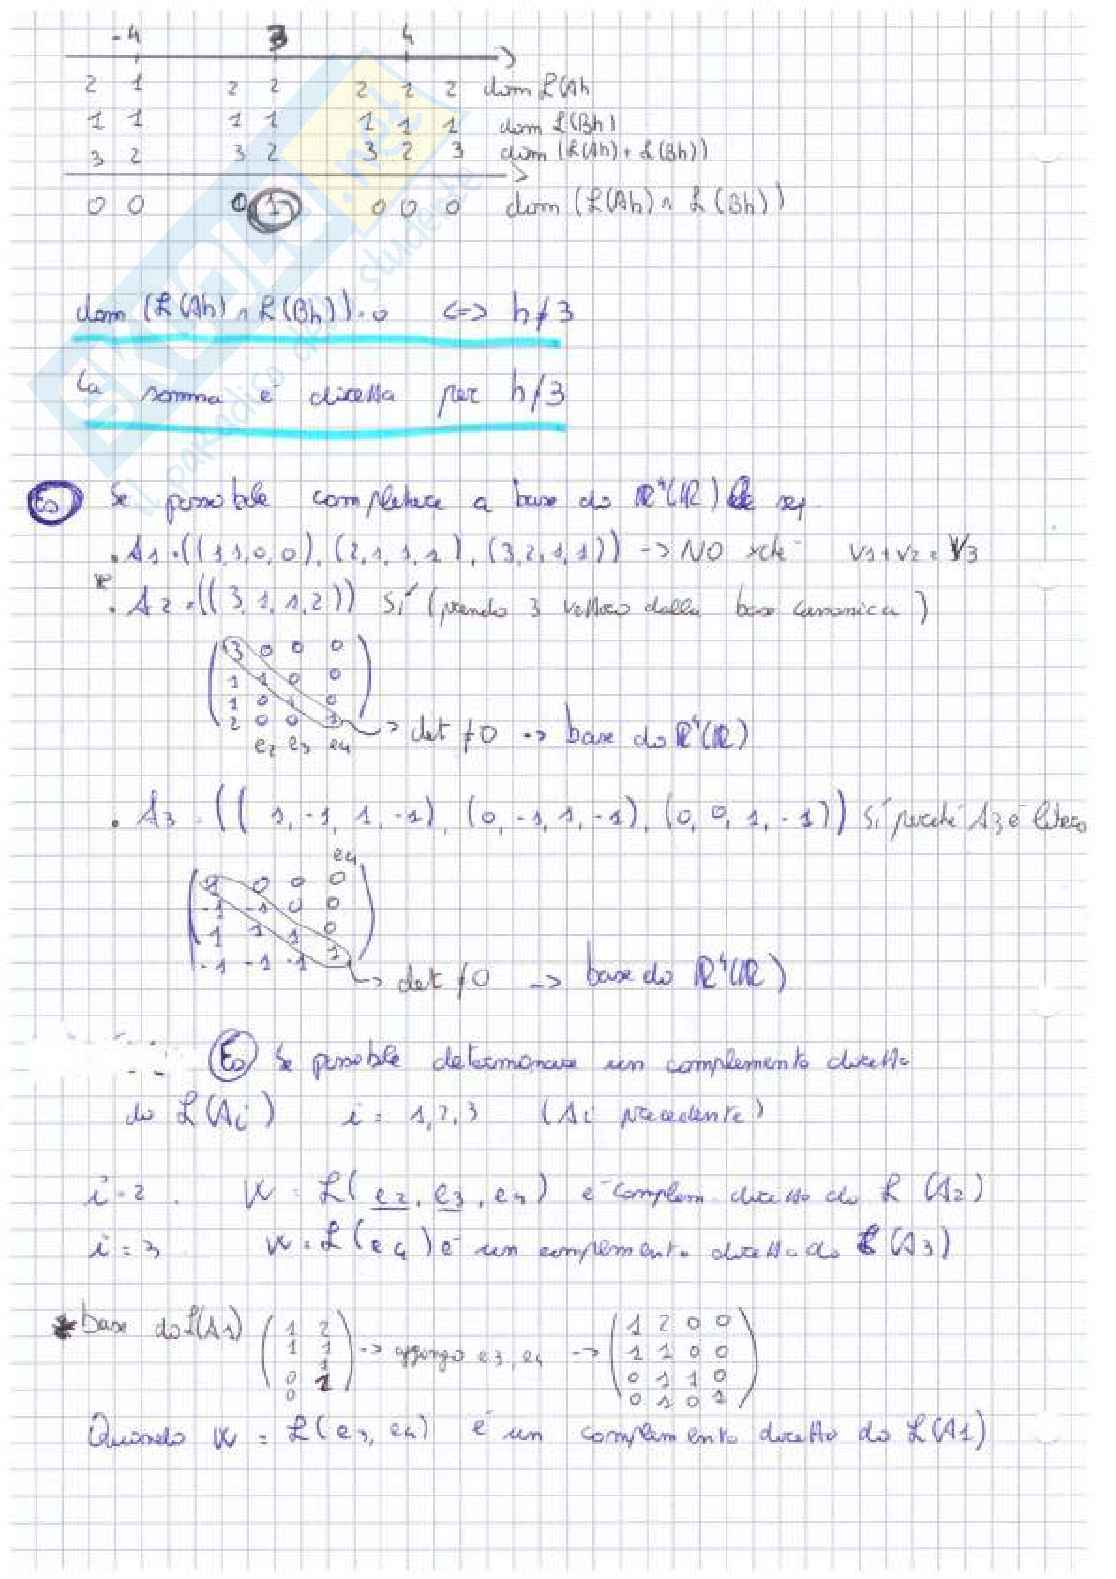 -4 3 4
2 1 2 2 2 2 2 dim L(Ah
1 1 1 1 1 1 1 dim L(Bh)
3 2 3 2 3 2 3 dim (L(Ah) + L(Bh))
0 0 0 1 0 0 0 dim (L(Ah) ∩ L(Bh))
dim (L(Ah) ∩ L(Bh)) = 0 <=> h≠3
La somma è diretta per h≠3
Es Se possibile completare a base di R⁴(R) le seq.
• A1 = ((1,1,0,0), (2,1,1,1), (3,2,1,1)) -> NO xché v1+v2 = v3
* • A2 = ((3,1,1,2)) Sí (prendo 3 vettori dalla base canonica)
3 0 0 0
1 1 0 0
1 0 1 0
2 0 0 1 -> det ≠0 -> base di R⁴(R)
e2 e3 e4
• A3 = ((1,-1,1,-1), (0,-1,1,-1), (0,0,1,-1)) Sí perché A3 è libera
e4
1 0 0 0
-1 -1 0 0
1 1 1 0
-1 -1 -1 1 -> det ≠0 -> base di R⁴(R)
Es Se possibile determinare un complemento diretto
di L(Ai) i = 1,2,3 (Ai precedente)
i=2. W = L(e2, e3, e4) è complem. diretto di L(A2)
i=3 W = L(e4) è un complemento diretto di L(A3)
* base di L(A1) (1 2 -> aggiungo e3, e4 -> (1 2 0 0
1 1 1 1 0 0
0 1 0 1 1 0
0 1) 0 1 0 1)
Quindi W = L(e3, e4) è un complemento diretto di L(A1)
SKUOLA.net
il paradiso dello studente